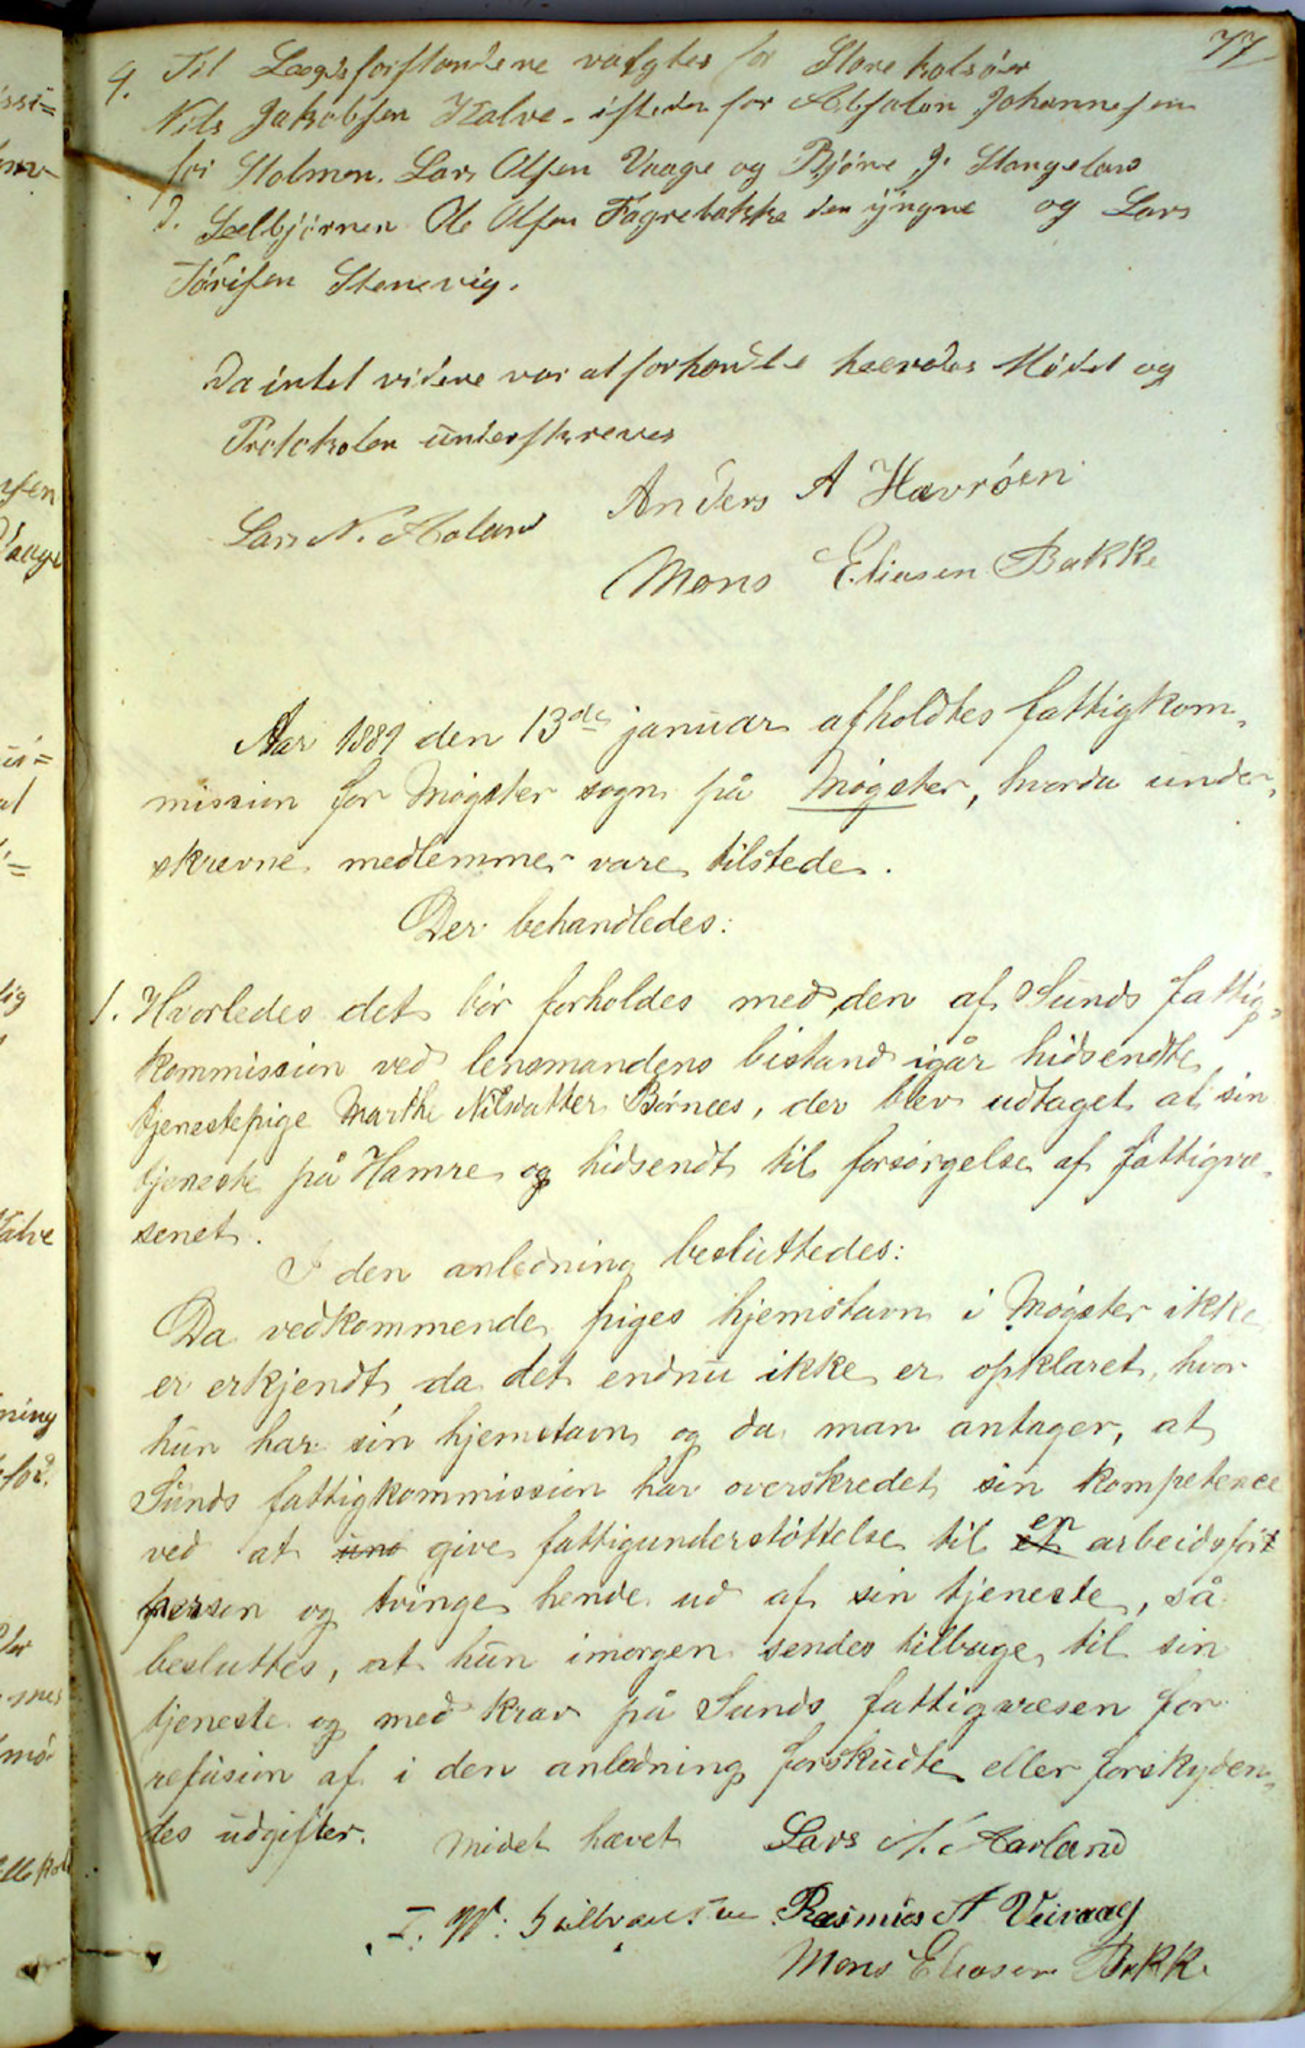 77
4. Til Lægdsforstandere valgtes for Storekalsøen
Nils Jakobsen Kalve - istedenfor Absalon Johannesen
for Stolmen. Lars Olsen Vaage og Bjørne J. Stangeland
d. Selbjørnen Ole Olsen Fagrebakke den yngre og Lars
Størksen Stenevig.
Da intet videre var at forhandle hævedes Mødet og
Protokolen underskreves
Anders A Hævrøen
Lars N. Aaland
Mons Eliasen Bakke
Aar 1881 den 13de januar afholdtes fattigkom-
mission for Møgster sogn på Møgster, hvorda under-
skrevne medlemmer vare tilstede.
Der behandledes:
1. Hvorledes det bør forholdes med den af Sunds fattig-
kommission ved lensmandens bistand igår hidsendte
tjenestepige Marthe Nilsdatter Børnæs, der blev udtaget af sin
tjeneste på Hamre og hidsendt til forsørgelse af fattigvæ-
senet.
I den anledning besluttedes:
Da vedkommende piges hjemstavn i Møgster ikke
er erkjendt, da det endnu ikke er opklaret, hvor
hun har sin hjemstavn og da man antager, at
Sunds fattigkommission har overskredet sin kompetence
ved at und give fattigunderstøttelse til et en arbeidsfør
person og tvinge hende ud af sin tjeneste, så
besluttes, at hun imorgen sendes tilbage til sin
tjeneste og med krav på Sunds fattigvæsen for
refusion af i den anledning forskudte eller forskyden-
des udgifter. Mødet hævet Lars N. Aarland
Rasmus A Veivaag
Mons Eliasen Bakke